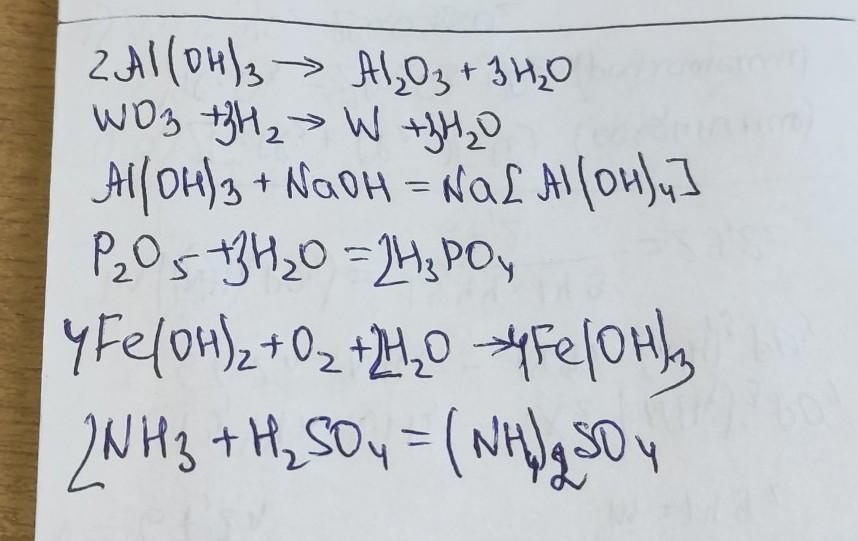 2Al(OH)₃ → Al₂O₃ + 3H₂O
WO₃ + 3H₂ → W + 3H₂O
Al(OH)₃ + NaOH = Na[Al(OH)₄]
P₂O₅ + 3H₂O = 2H₃PO₄
4Fe(OH)₂ + O₂ + 2H₂O → 4Fe(OH)₃
2NH₃ + H₂SO₄ = (NH₄)₂SO₄